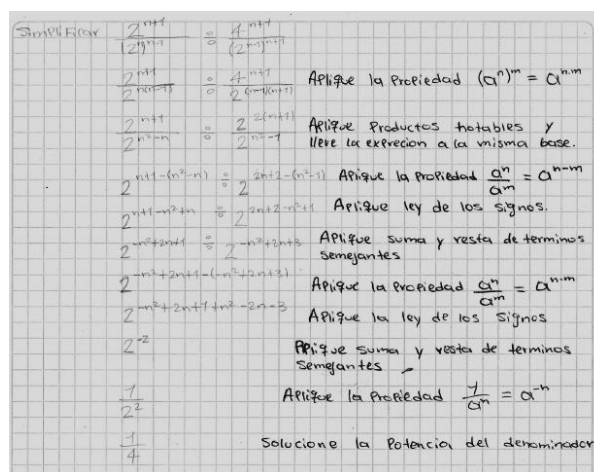 Simplificar 2^{n+1}/(2^n)^{n-1} ÷ 4^{n+1}/(2^{n-1})^{n+1}
2^{n+1}/2^{n(n-1)} ÷ 4^{n+1}/2^{(n-1)(n+1)} Aplique la Propiedad (a^n)^m = a^{n·m}
2^{n+1}/2^{n²-n} ÷ 2^{2(n+1)}/2^{n²-1} Aplique Productos notables y
lleve la exprecion a la misma base.
2^{n+1-(n²-n)} ÷ 2^{2n+2-(n²-1)} Aplique la Propiedad a^n/a^m = a^{n-m}
2^{n+1-n²+n} ÷ 2^{2n+2-n²+1} Aplique ley de los signos.
2^{-n²+2n+1} ÷ 2^{-n²+2n+3} Aplique suma y resta de terminos
semejantes
2^{-n²+2n+1-(-n²+2n+3)} Aplique la Propiedad a^n/a^m = a^{n-m}
2^{-n²+2n+1+n²-2n-3} Aplique la ley de los signos
2^{-2} Aplique suma y resta de terminos
semejantes
1/2² Aplique la Propiedad 1/a^n = a^{-n}
1/4 Solucione la Potencia del denominador